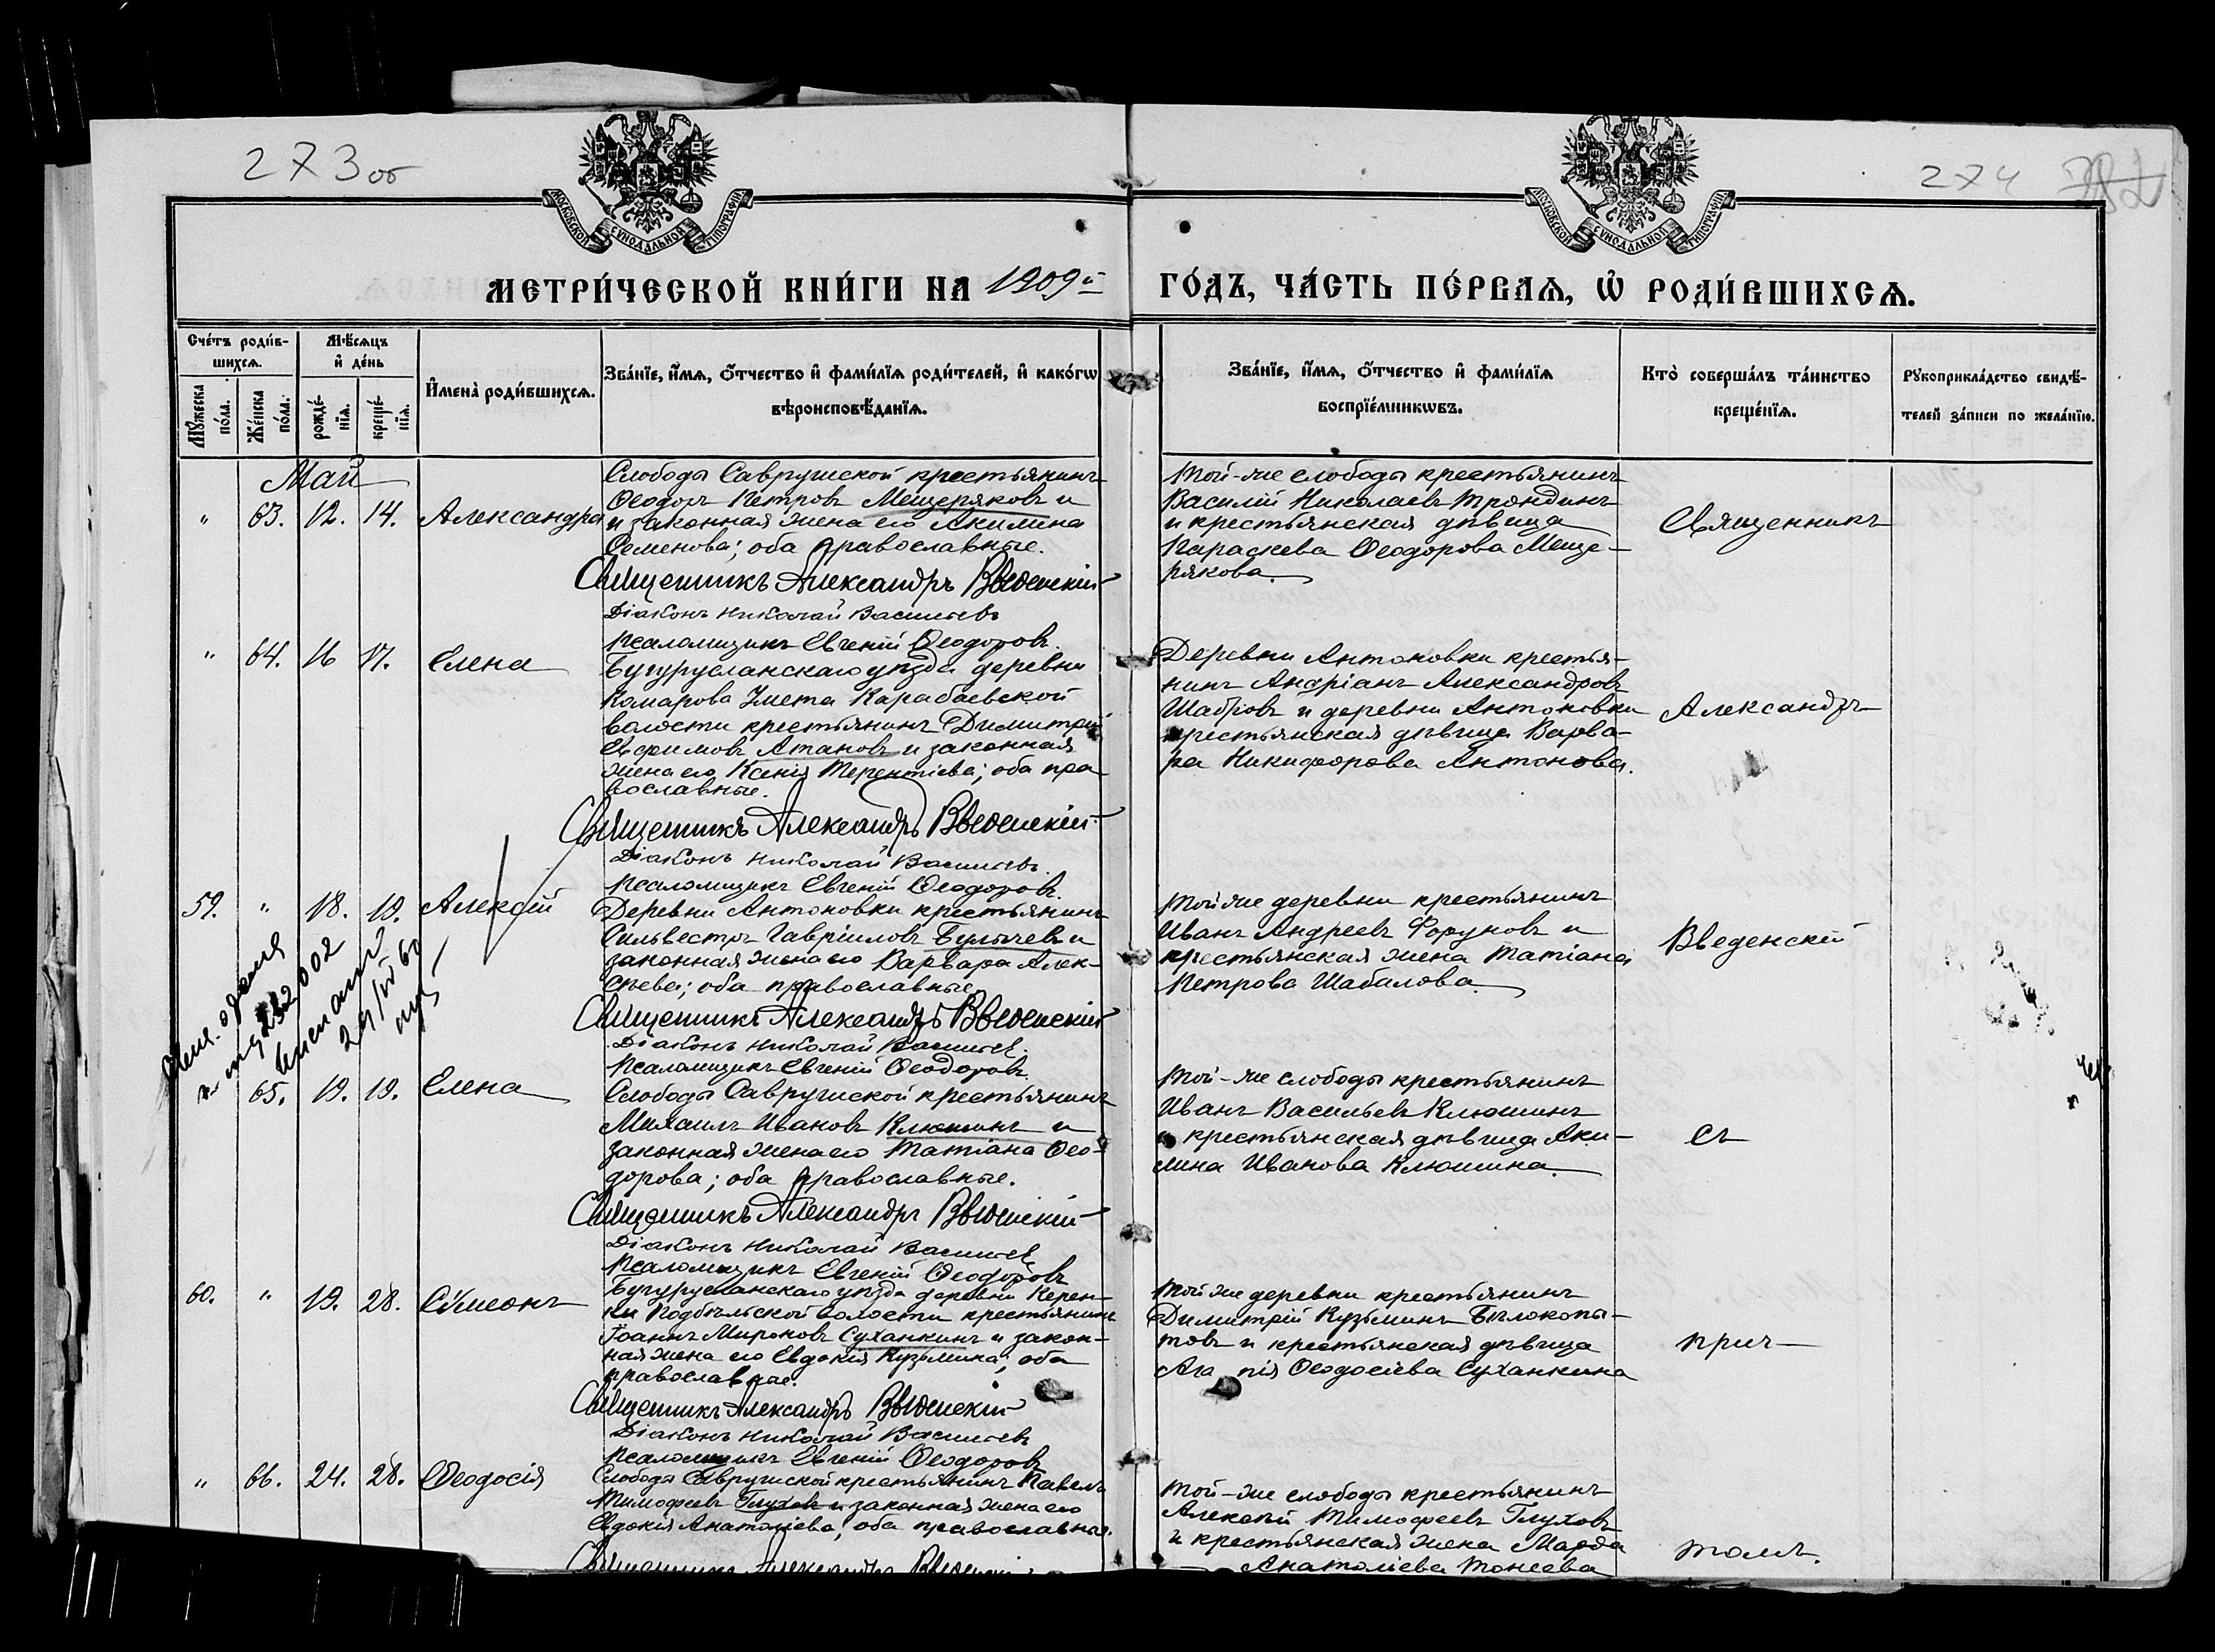 273 об
274
МОСКОВСКОЙ СУНОДАЛЬНОЙ ТИПОГРАФІИ
МОСКОВСКОЙ СУНОДАЛЬНОЙ ТИПОГРАФІИ
МЕТРИ́ЧЕСКОЙ КНИ́ГИ НА 1909й
ГО́ДЪ, ЧА́СТЬ ПЕ́РВАѦ, Ѡ҆ РОДИ́ВШИХСѦ.
Сче́тъ роди́в-
шихсѧ.
Мꙋ́жеска по́ла.
Же́нска по́ла.
Мѣ́сѧцъ
и҆ де́нь
рожде́-
нїѧ.
креще́-
нїѧ.
И҆мена̀ роди́вшихсѧ.
Зва́нїе, и҆́мѧ, ѻ҆́тчество и҆ фами́лїѧ роди́телей, и҆ како́гѡ
вѣроисповѣ́данїѧ.
Зва́нїе, и҆́мѧ, ѻ҆́тчество и҆ фами́лїѧ
воспрїе́мникѡвъ.
Кто̀ соверша́лъ та́инство
креще́нїѧ.
Рꙋкоприкла́дство свидѣ́-
телей за́писи по жела́нїю.
Май
" 63. 12. 14. Александра
Слободы Саврушской крестьянинъ
Ѳеодоръ Петровъ Мещеряковъ и
и законная жена его Акилина
Семенова; оба православные.
Священникъ Александръ Введенскій
Діаконъ Николай Васильевъ
Псаломщикъ Евгеній Ѳеодоровъ.
Той-же слободы крестьянинъ
Василій Николаевъ Трондинъ
и крестьянская дѣвица
Параскева Ѳеодорова Меще-
рякова.
Священникъ
" 64. 16 17. Елена
Бугурусланскаго уѣзда деревни
Комарова Умета Карабаевской
волости крестьянинъ Димитрій
Евфимовъ Атановъ и законная
жена его Ксенія Терентіева; оба пра-
вославные.
Священникъ Александръ Введенскій
Діаконъ Николай Васильевъ.
Псаломщикъ Евгеній Ѳеодоровъ.
Деревни Антоновки крестья-
нинъ Андріанъ Александровъ
Шабровъ и деревни Антоновки
крестьянская дѣвица Варва-
ра Никифорова Антонова.
Александръ
59. " 18. 19. Алексій
Деревни Антоновки крестьянинъ
Сильвестръ Гавріиловъ Булычевъ и
законная жена его Варвара Алек-
сѣева; оба православные.
Священникъ Александръ Введенскій
Діаконъ Николай Васильевъ.
Псаломщикъ Евгеній Ѳеодоровъ.
Той же деревни крестьянинъ
Иванъ Андреевъ Форуновъ и
крестьянская жена Татіана
Петрова Шабалова.
Введенскій
" 65. 19. 19. Елена
Слободы Саврушской крестьянинъ
Михаилъ Ивановъ Клюшинъ и
законная жена его Татіана Ѳео-
дорова; оба православные.
Священникъ Александръ Введенскій
Діаконъ Николай Васильевъ
Псаломщикъ Евгеній Ѳеодоровъ
Той-же слободы крестьянинъ
Иванъ Васильевъ Клюшинъ
и крестьянская дѣвица Аки-
лина Иванова Клюшина.
съ
60. " 19. 28. Сѵмеонъ
Бугурусланскаго уѣзда деревни Керен-
ки Подбѣльской волости крестьянинъ
Іоаннъ Мироновъ Суханкинъ и закон-
ная жена его Евдокія Кузьмина; оба
православные.
Священникъ Александръ Введенскій
Діаконъ Николай Васильевъ
Псаломщикъ Евгеній Ѳеодоровъ
Той же деревни крестьянинъ
Димитрій Кузьминъ Бѣлокопы-
товъ и крестьянская дѣвица
Ага пія Ѳеодосіева Суханкина
прич-
" 66. 24. 28. Ѳеодосія
Слободы Саврушской крестьянинъ Павелъ
Тимофеевъ Глуховъ и законная жена его
Евдокія Анатоліева; оба православные.
Священникъ Александръ Введенскій
Той-же слободы крестьянинъ
Алексѣй Тимофеевъ Глуховъ
и крестьянская жена Марѳа
Анатоліева Тонеева
томъ.